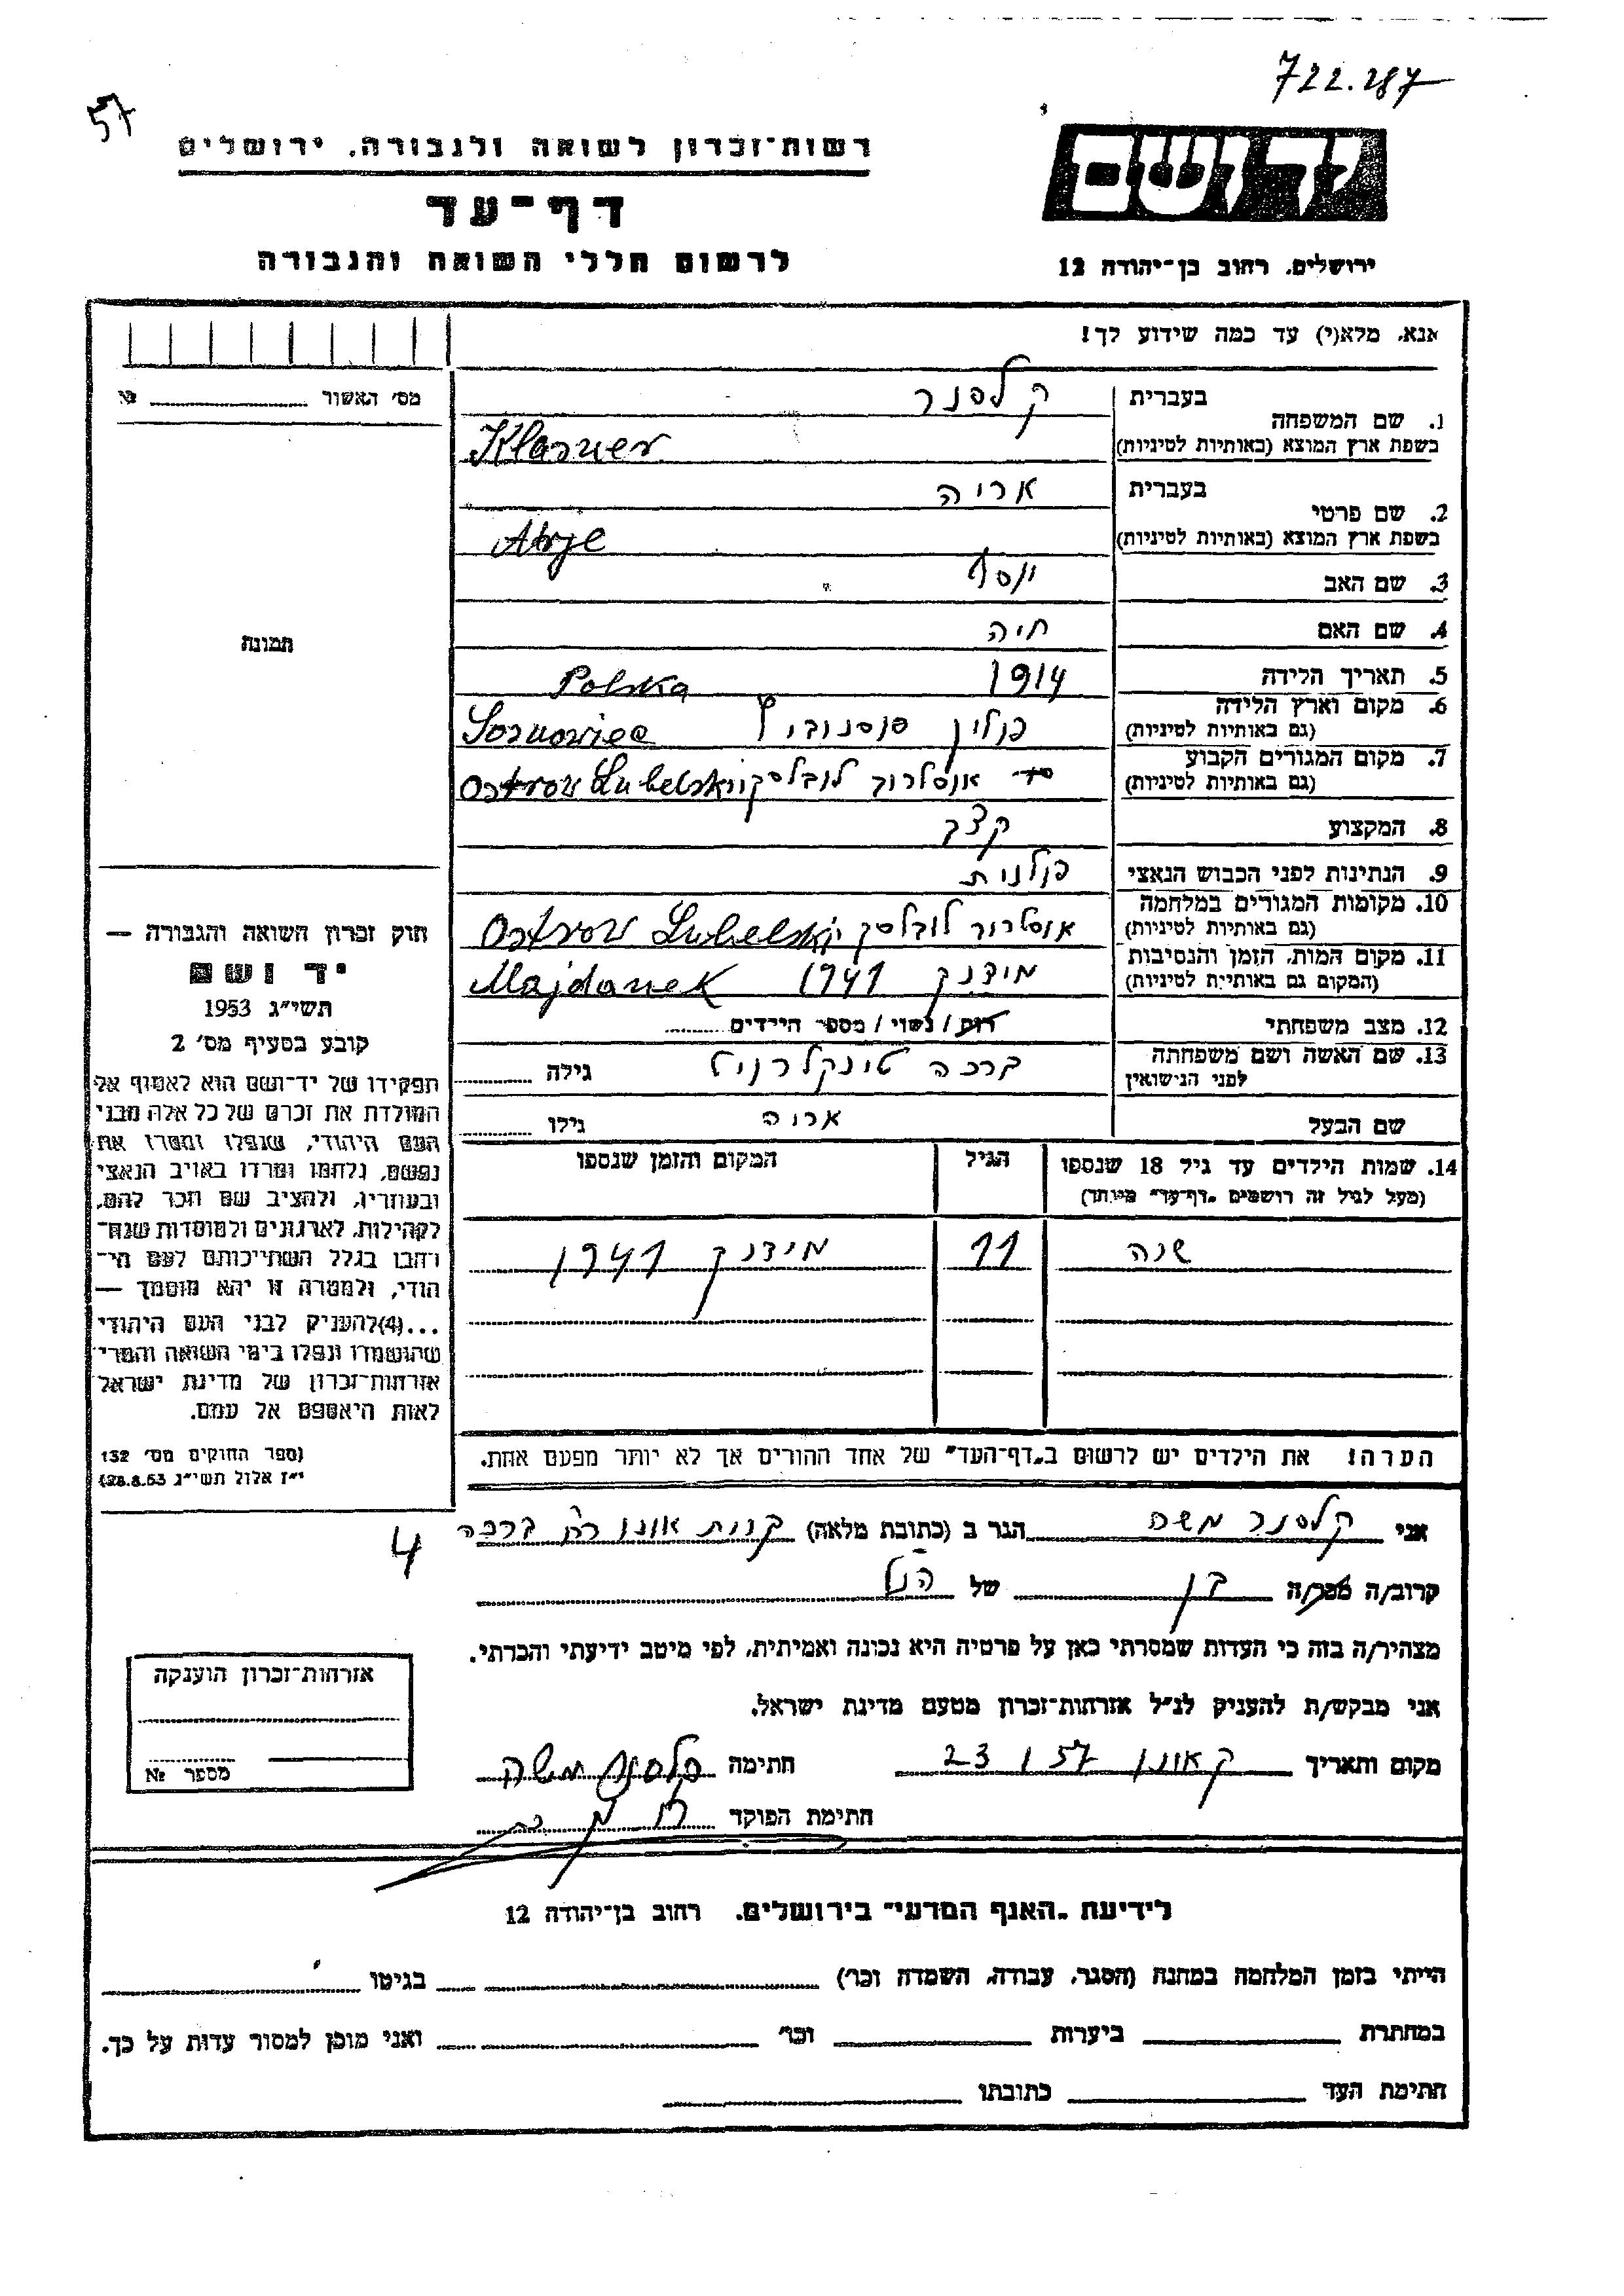 722.287
57
רשות־זכרון לשואה ולגבורה, ירושלים
דף־עד
לרשום חללי השואה והגבורה
יד ושם
ירושלים, רחוב בן־יהודה 12
אנא, מלא(י) עד כמה שידוע לך!
מס׳ האשור № 
תמונה
1. שם המשפחה בעברית קלסנר
בשפת ארץ המוצא (באותיות לטיניות) Klasner
2. שם פרטי בעברית אריה
בשפת ארץ המוצא (באותיות לטיניות) Arje
3. שם האב יוסף
4. שם האם חיה
5. תאריך הלידה 1914
6. מקום וארץ הלידה (גם באותיות לטיניות) פולין סוסנוביץ Sosnowiec Polska
7. מקום המגורים הקבוע (גם באותיות לטיניות) אוסטרוב לובלסקי Ostrov Lubelski
8. המקצוע קצב
9. הנתינות לפני הכבוש הנאצי פולנית
10. מקומות המגורים במלחמה (גם באותיות לטיניות) אוסטרוב לובלסקי Ostrov Lubelski
11. מקום המות, הזמן והנסיבות (המקום גם באותיות לטיניות) מידנק 1941 Majdanek
12. מצב משפחתי רווק / נשוי / מספר הילדים
13. שם האשה ושם משפחתה לפני הנישואין ברכה גילה
שם הבעל אריה גילו
14. שמות הילדים עד גיל 18 שנספו
(מעל לגיל זה רושמים „דף־עד״ מיוחד)
הגיל
המקום והזמן שנספו
שנה 11 מידנק 1941
הערה! את הילדים יש לרשום ב„דף־העד״ של אחד ההורים אך לא יותר מפעם אחת.
חוק זכרון השואה והגבורה —
יד ושם
תשי״ג 1953
קובע בסעיף מס׳ 2
תפקידו של יד־ושם הוא לאסוף אל
המולדת את זכרם של כל אלה מבני
העם היהודי, שנפלו ומסרו את
נפשם, נלחמו ומרדו באויב הנאצי
ובעוזריו, ולהציב שם וזכר להם,
לקהילות, לארגונים ולמוסדות שנח־
רבו בגלל השתייכותם לעם הי־
הודי, ולמטרה זו יהא מוסמך —
...(4)להעניק לבני העם היהודי
שהושמדו ונפלו בימי השואה והמרי
אזרחות־זכרון של מדינת ישראל
לאות היאספם אל עמם.
(ספר החוקים מס׳ 132
י״ז אלול תשי״ג 28.8.53)
אני קלסנר משה הגר ב (כתובת מלאה) קרית אונו רח ברכה
4
קרוב/ה מכר/ה בן של הנ״ל
מצהיר/ה בזה כי העדות שמסרתי כאן על פרטיה היא נכונה ואמיתית, לפי מיטב ידיעתי והכרתי.
אני מבקש/ת להעניק לנ״ל אזרחות־זכרון מטעם מדינת ישראל.
מקום ותאריך ק אונו 23 I 57 חתימה קלסנר משה
חתימת הפוקד
אזרחות־זכרון הוענקה
מספר №
לידיעת „האגף המדעי״ בירושלים, רחוב בן־יהודה 12
הייתי בזמן המלחמה במחנה (הסגר, עבודה, השמדה וכו׳) בגיטו
במחתרת ביערות וכו׳ ואני מוכן למסור עדות על כך.
חתימת העד כתובתו